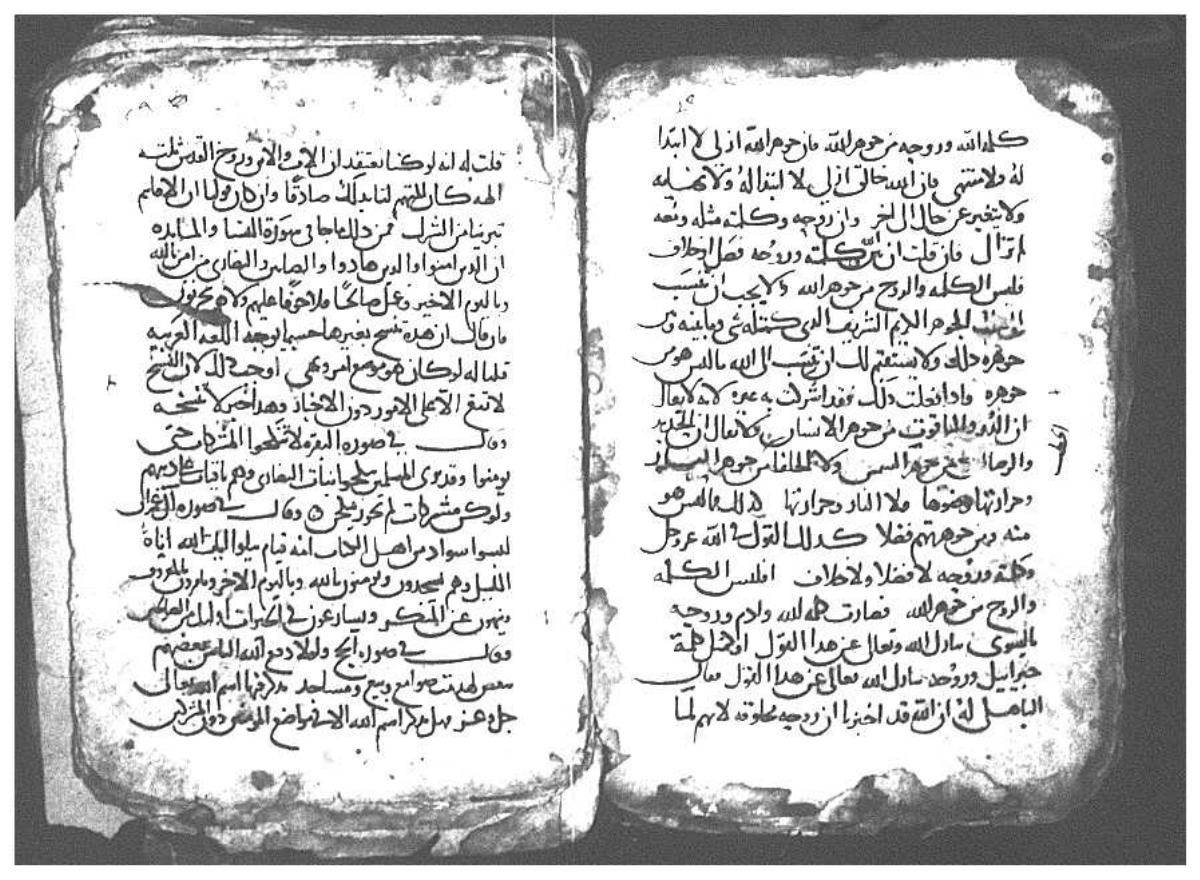 كلمه الله وروحه من جوهر الله فان جوهر الله ازلى لا ابتدا
له ولا منتهى فان الله خالق ازلى لا ابتدا له ولا نهايه
ولا يتغير عن حال الى اخر وان روحه وكلمته مثله ومعه
لم تزال فان قلت ان بين كلمته وروحه فصل او خلاف
فليس الكلمه والروح من جوهر الله ولا يجب ان تنسب
الجوهر الدايم الشريف الدى كمتله شى وما بينه وبين
جوهره دلك ولا يستقيم لك ان تنسب الى الله ما ليس هو من
جوهره فادا فعلت دلك فقد اشركت به غيره لانه لا يقال
ان الدر والياقوت من جوهر الانسان ولا يقال ان الحديد
والرصاص من جوهر الشمس ولا من جوهر
وحرارتها وضوها ولا النار وحرارتها كدلك ما ليس هو
منه وبين جوهرتهم فضلا كدلك القول فى الله عز وجل
وكلمته وروحه لا فضلا ولا خلاف افليس الكلمه
والروح من جوهر الله فصارت كلمة الله وادم وروحه
بالسوى تبارك الله وتعالى عن هدا القول او مثل كلمة
جبراييل وروحه تبارك الله تعالى عن هدا القول فقال
الباهلى له ان الله قد اخبرنا ان روحه مخلوقه لانهم لما
قلت له انه لو كنا نعتقد ان الاب والابن وروح القدس ثلته
الهه كان اتهم لنا بدلك صادقًا وان كان قولنا ان الاقانيم
تبرينا من الشرك فمن دلك ما جا فى سورة النسا والمايده
ان الدين امنوا والدين هادوا والصابين والنصارى من امن بالله
وباليوم الاخير وعمل صالحًا فلا خوفًا عليهم ولا هم يحزنون
فان قال ان هده تنسخ بغيرها حسبما توجبه اللغه العربيه
قلنا له لو كان هو موضع امر ونهى اوجب دلك لان النسخ
لا تبع الا على الامور دون الاخبار وهدا خبر لا نسخه
وقال فى صوره البقره لا تنكحوا المشركات حتى
يومنوا وقد يرى المسلمين ينكحوا بنات النصارى وهم باقيات على دينهم
ولو كن مشركات لم تجوز ينكحن وقال فى صوره ال عمران
ليسوا سوا من اهل الكتاب امه قيام يتلوا ايات الله اناة
الليل وهم يسجدون ويومنون بالله وباليوم الاخر ويامرون بالمعروف
وينهون عن المنكر ويسارعون فى الخيرات واوليك من الصالحين
وقال فى صوره الحج ولولا دفع الله الناس بعضهم
ببعض لهدمت صوامع وبيع ومساجد يدكر فيها اسم الله تعالى
جل وعز فهل يدكر اسم الله الا فى مواضع المومنين دون المشركين